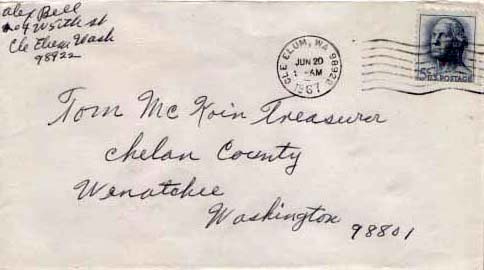 Alex Bell
204 W 5th st
Cle Elum Wash
98922
CLE ELUM, WA 98922
JUN 20
AM
1967
5c U.S. POSTAGE
Tom McKoin Treasurer
Chelan County
Wenatchee
Washington
98801